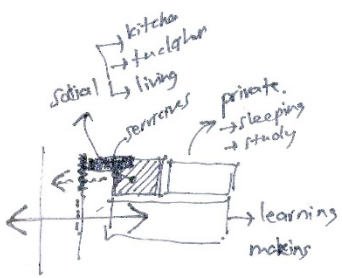 kitchen
social
living
services
private.
→ sleeping
→ study
→ learning
making